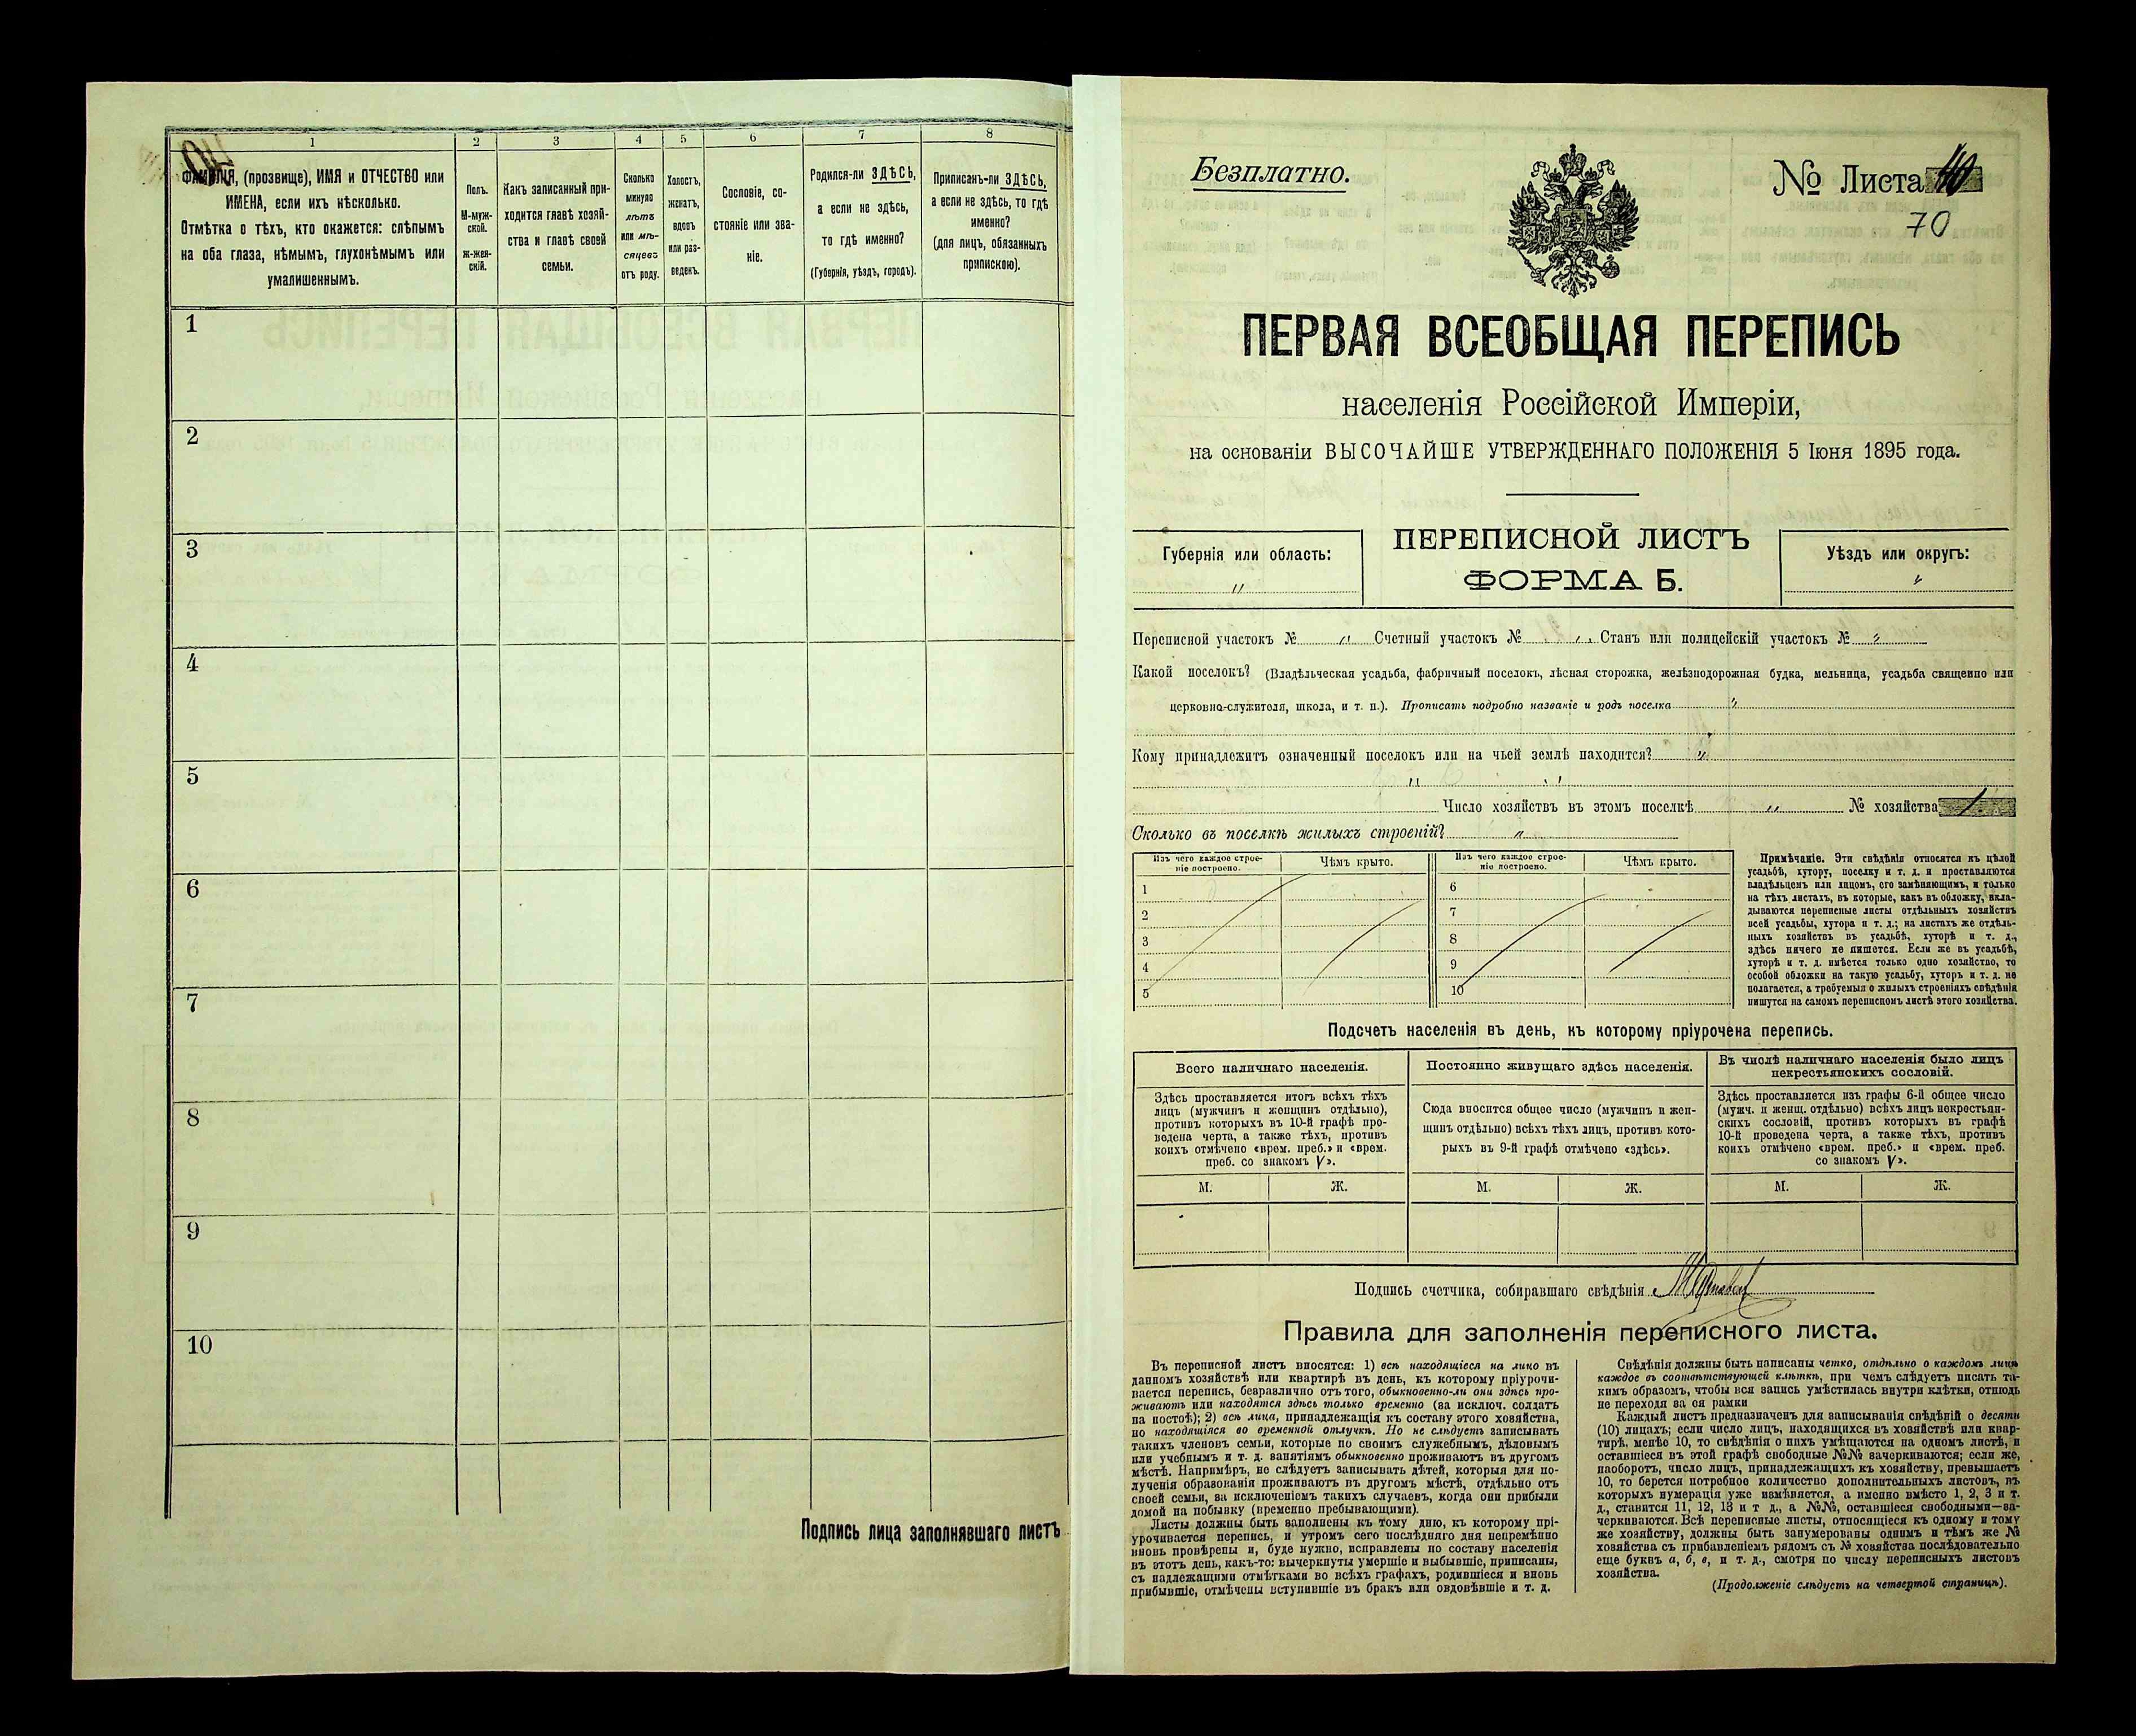 1
2
3
4
5
6
7
8
ФАМИЛІЯ, (прозвище), ИМЯ и ОТЧЕСТВО или
ИМЕНА, если ихъ нѣсколько.
Отмѣтка о тѣхъ, кто окажется: слѣпымъ
на оба глаза, нѣмымъ, глухонѣмымъ или
умалишеннымъ.
Полъ.
М-муж-
ской.
ж-жен-
скій.
Какъ записанный при-
ходится главѣ хозяй-
ства и главѣ своей
семьи.
Сколько
минуло
лѣтъ
или мѣ-
сяцевъ
отъ роду.
Холостъ,
женатъ,
вдовъ
или раз-
веденъ.
Сословіе, со-
стояніе или зва-
ніе.
Родился-ли ЗДѢСЬ,
а если не здѣсь,
то гдѣ именно?
(Губернія, уѣздъ, городъ).
Приписанъ-ли ЗДѢСЬ,
а если не здѣсь, то гдѣ
именно?
(для лицъ, обязанныхъ
припискою).
1
2
3
4
5
6
7
8
9
10
Подпись лица заполнявшаго листъ
Безплатно.
№ Листа 40
70
ПЕРВАЯ ВСЕОБЩАЯ ПЕРЕПИСЬ
населенія Россійской Имперіи,
на основаніи ВЫСОЧАЙШЕ УТВЕРЖДЕННАГО ПОЛОЖЕНІЯ 5 Іюня 1895 года.
Губернія или область:
"
ПЕРЕПИСНОЙ ЛИСТЪ
ФОРМА Б.
Уѣздъ или округъ:
"
Переписной участокъ № " Счетный участокъ № " Станъ или полицейскій участокъ № "
Какой поселокъ? (Владѣльческая усадьба, фабричный поселокъ, лѣсная сторожка, желѣзнодорожная будка, мельница, усадьба священно или
церковно-служителя, школа, и т. п.). Прописать подробно названіе и родъ поселка "
Кому принадлежитъ означенный поселокъ или на чьей землѣ находится? "
" "
Число хозяйствъ въ этомъ поселкѣ " № хозяйства 1.
Сколько въ поселкѣ жилыхъ строеній? "
Изъ чего каждое строе-
ніе построено.
Чѣмъ крыто.
Изъ чего каждое строе-
ніе построено.
Чѣмъ крыто.
1
2
3
4
5
6
7
8
9
10
Примѣчаніе. Эти свѣдѣнія относятся къ цѣлой
усадьбѣ, хутору, поселку и т. д. и проставляются
владѣльцемъ или лицомъ, его замѣняющимъ, и только
на тѣхъ листахъ, въ которые, какъ въ обложку, вкла-
дываются переписные листы отдѣльныхъ хозяйствъ
всей усадьбы, хутора и т. д.; на листахъ же отдѣль-
ныхъ хозяйствъ въ усадьбѣ, хуторѣ и т. д.,
здѣсь ничего не пишется. Если же въ усадьбѣ,
хуторѣ и т. д. имѣется только одно хозяйство, то
особой обложки на такую усадьбу, хуторъ и т. д. не
полагается, а требуемыя о жилыхъ строеніяхъ свѣдѣнія
пишутся на самомъ переписномъ листѣ этого хозяйства.
Подсчетъ населенія въ день, къ которому пріурочена перепись.
Всего наличнаго населенія.
Постоянно живущаго здѣсь населенія.
Въ числѣ наличнаго населенія было лицъ
некрестьянскихъ сословій.
Здѣсь проставляется итогъ всѣхъ тѣхъ
лицъ (мужчинъ и женщинъ отдѣльно),
противъ которыхъ въ 10-й графѣ про-
ведена черта, а также тѣхъ, противъ
коихъ отмѣчено «врем. преб.» и «врем.
преб. со знакомъ V».
Сюда вносится общее число (мужчинъ и жен-
щинъ отдѣльно) всѣхъ тѣхъ лицъ, противъ кото-
рыхъ въ 9-й графѣ отмѣчено «здѣсь».
Здѣсь проставляется изъ графы 6-й общее число
(мужч. и женщ. отдѣльно) всѣхъ лицъ некрестьян-
скихъ сословій, противъ которыхъ въ графѣ
10-й проведена черта, а также тѣхъ, противъ
коихъ отмѣчено «врем. преб.» и «врем. преб.
со знакомъ V».
М.
Ж.
М.
Ж.
М.
Ж.
Подпись счетчика, собиравшаго свѣдѣнія
Правила для заполненія переписного листа.
Въ переписной листъ вносятся: 1) всѣ находящіеся на лицо въ
данномъ хозяйствѣ или квартирѣ въ день, къ которому пріурочи-
вается перепись, безразлично отъ того, обыкновенно-ли они здѣсь про-
живаютъ или находятся здѣсь только временно (за исключ. солдатъ
на постоѣ); 2) всѣ лица, принадлежащія къ составу этого хозяйства,
но находящіяся во временной отлучкѣ. Но не слѣдуетъ записывать
такихъ членовъ семьи, которые по своимъ служебнымъ, дѣловымъ
или учебнымъ и т. д. занятіямъ обыкновенно проживаютъ въ другомъ
мѣстѣ. Напримѣръ, не слѣдуетъ записывать дѣтей, которыя для по-
лученія образованія проживаютъ въ другомъ мѣстѣ, отдѣльно отъ
своей семьи, за исключеніемъ такихъ случаевъ, когда они прибыли
домой на побывку (временно пребывающими).
Листы должны быть заполнены къ тому дню, къ которому прі-
урочивается перепись, и утромъ сего послѣдняго дня непремѣнно
вновь провѣрены и, буде нужно, исправлены по составу населенія
въ этотъ день, какъ-то: вычеркнуты умершіе и выбывшіе, приписаны,
съ надлежащими отмѣтками во всѣхъ графахъ, родившіеся и вновь
прибывшіе, отмѣчены вступившіе въ бракъ или овдовѣвшіе и т. д.
Свѣдѣнія должны быть написаны четко, отдѣльно о каждомъ лицѣ
каждое въ соотвѣтствующей клѣткѣ, при чемъ слѣдуетъ писать та-
кимъ образомъ, чтобы вся запись умѣстилась внутри клѣтки, отнюдь
не переходя за ея рамки
Каждый листъ предназначенъ для записыванія свѣдѣній о десяти
(10) лицахъ; если число лицъ, находящихся въ хозяйствѣ или квар-
тирѣ, менѣе 10, то свѣдѣнія о нихъ умѣщаются на одномъ листѣ, и
оставшіеся въ этой графѣ свободные №№ зачеркиваются; если же,
наоборотъ, число лицъ, принадлежащихъ къ хозяйству, превышаетъ
10, то берется потребное количество дополнительныхъ листовъ, въ
которыхъ нумерація уже измѣняется, а именно вмѣсто 1, 2, 3 и т.
д., ставится 11, 12, 13 и т д., а №№, оставшіеся свободными—за-
черкиваются. Всѣ переписные листы, относящіеся къ одному и тому
же хозяйству, должны быть занумерованы однимъ и тѣмъ же №
хозяйства съ прибавленіемъ рядомъ съ № хозяйства послѣдовательно
еще буквъ а, б, в, и т. д., смотря по числу переписныхъ листовъ
хозяйства.
(Продолженіе слѣдуетъ на четвертой страницѣ).